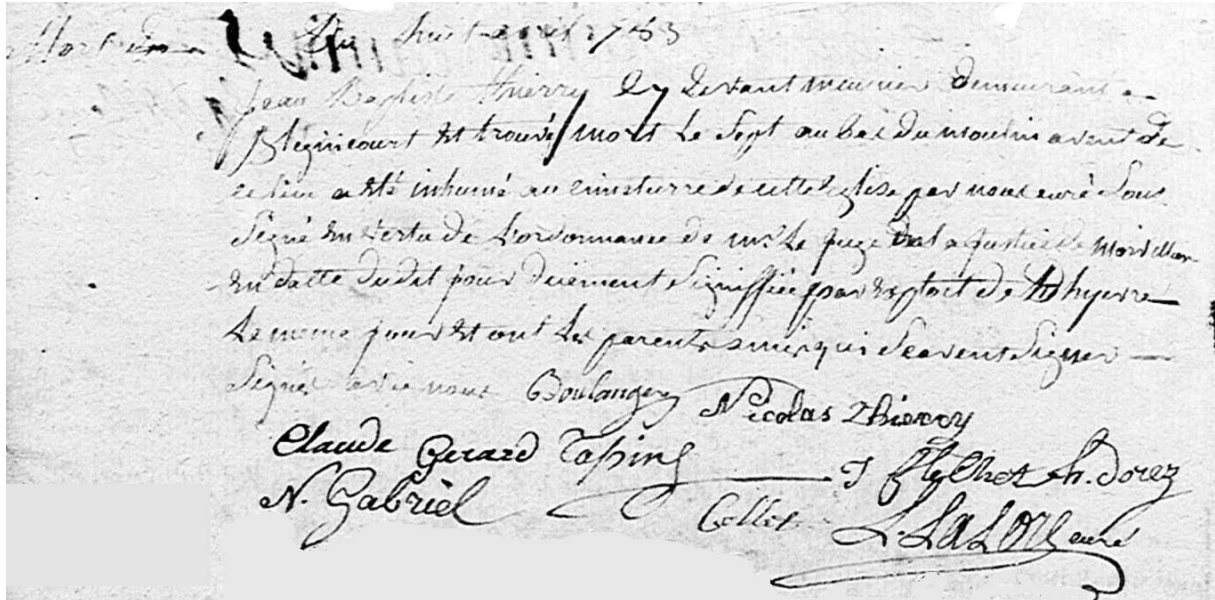 Mort
Du huit avril 1783
Jean Baptiste thierry Cy devant meunier demeurant a
Blégnicourt Est trouvé mort Le Sept au bas du moulin avent de
ce lieu a Eté inhumé au cimeterre de cette Eglise par nous curé Sous
Signé En Vertu de L'ordonnance de mr Le juge de la justice de
En datte dudit jour duement Signiffiée par Exploit de Thyerré
Le meme jour Et ont Les parents amis qui Scavent Signer
Signé avec nous Boulanger Nicolas Thierry
Claude Gerard Tapins J h. Dorez
N. Gabriel Collet L. LALORE curé